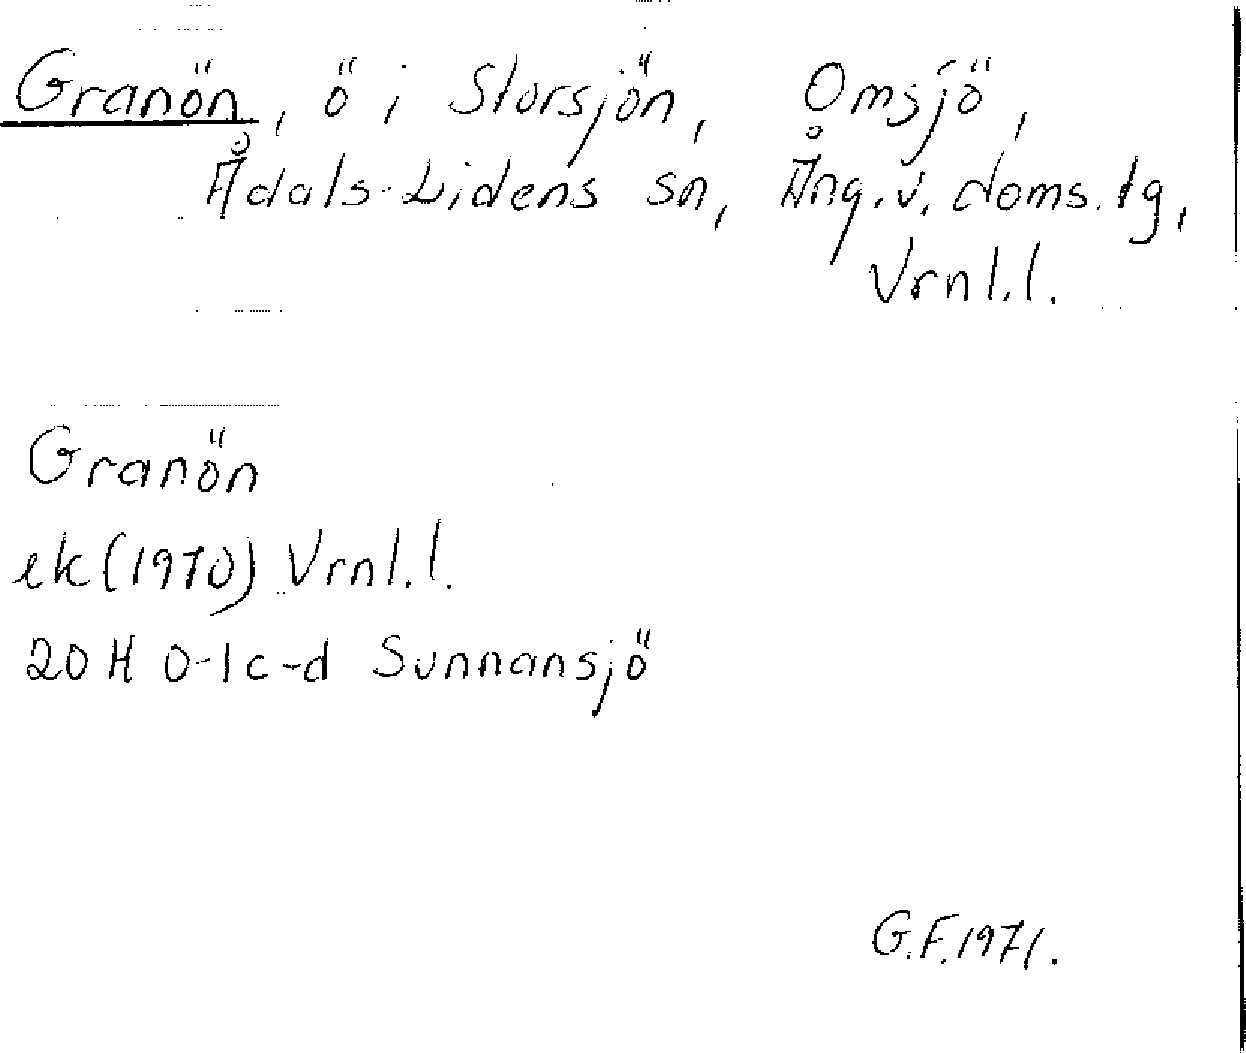 Granön, ö i Storsjön, Omsjö,
Ådals-Lidens sn, Ång. v. doms. tg,
Vrnl.l.
Granön
ek (1970) Vrnl.l.
20 H 0-1c-d Sunnansjö
G.F.1971.